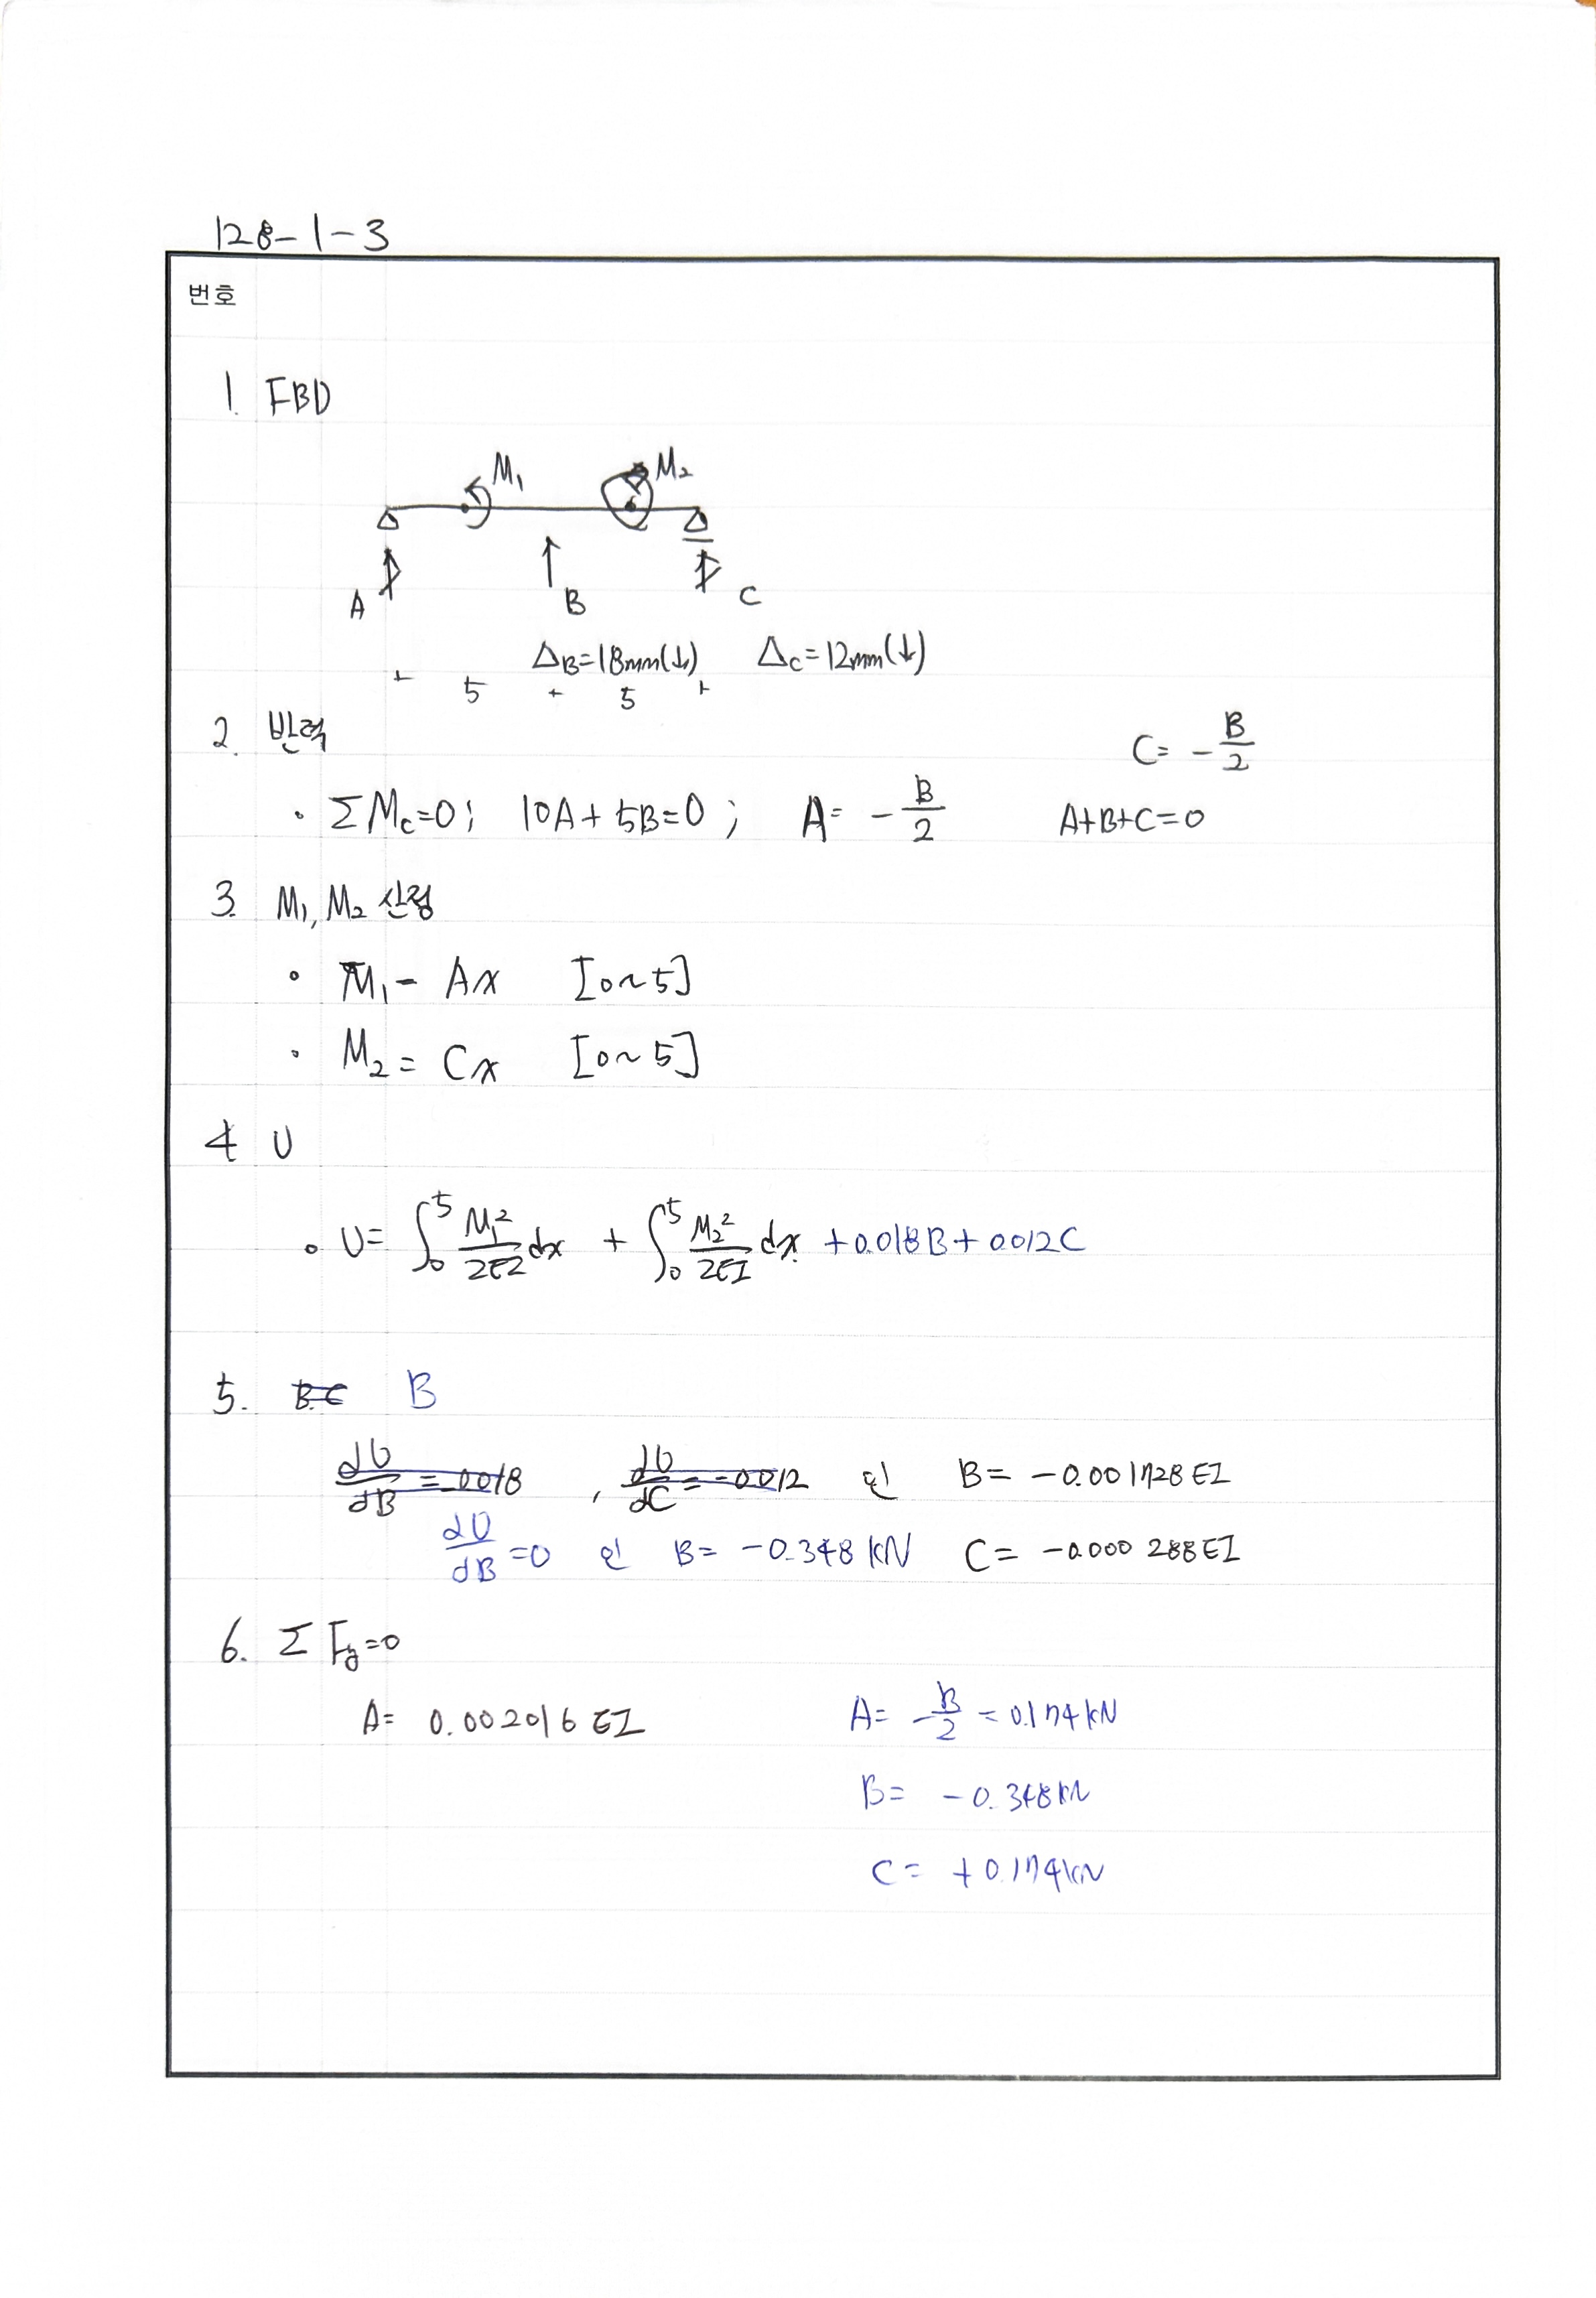 128-1-3
번호
1. FBD
M₁ M₂
A B C
ΔB=18mm(↓) Δc=12mm(↓)
5 5
2. 반력
C= -B/2
· ΣMc=0; 10A+5B=0; A= -B/2 A+B+C=0
3. M₁, M₂ 산정
· M₁= Ax [0~5]
· M₂= Cx [0~5]
4 U
· U= ∫₀⁵ M₁²/2EI dx + ∫₀⁵ M₂²/2EI dx +0.018B+0.012C
5. B.C B
dU/dB = -0.018 , dU/dC = -0.012 인 B= -0.001728EI
dU/dB =0 인 B= -0.348kN C= -0.000288EI
6. ΣFy=0
A= 0.002016EI A= -B/2 = 0.174kN
B= -0.348kN
C= +0.174kN